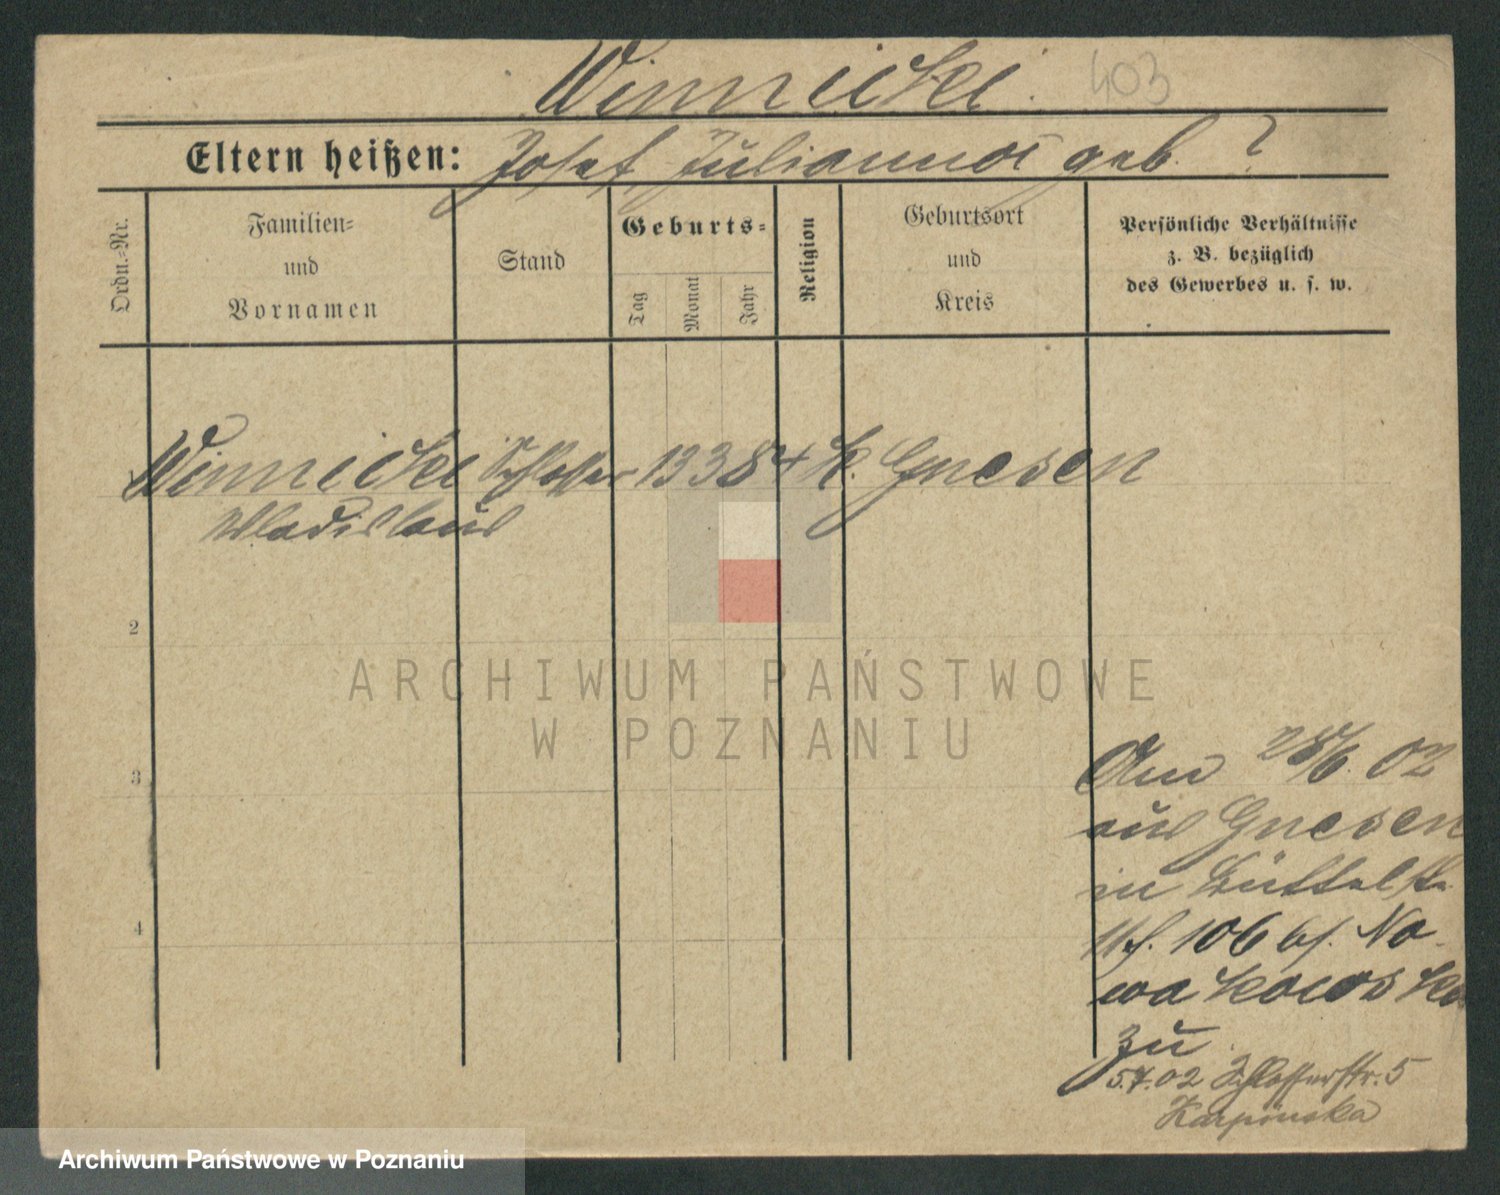 Winnicki. 403
Eltern heißen: Josef, Julianna geb. ?
Ordn.=Nr.
Familien=
und
Vornamen
Stand
Geburts=
Tag
Monat
Jahr
Religion
Geburtsort
und
Kreis
Persönliche Verhältnisse
z. B. bezüglich
des Gewerbes u. s. w.
Winnicki Schlosser 13 3 84 k. Gnesen
Wladislaus
2
3
4
Am 28/6. 02
aus Gnesen
in Büttelstr.
106 bf. No-
wakowska
zu
5.7.02 Schlosserstr. 5
Karpinska
ARCHIWUM PAŃSTWOWE
W POZNANIU
Archiwum Państwowe w Poznaniu